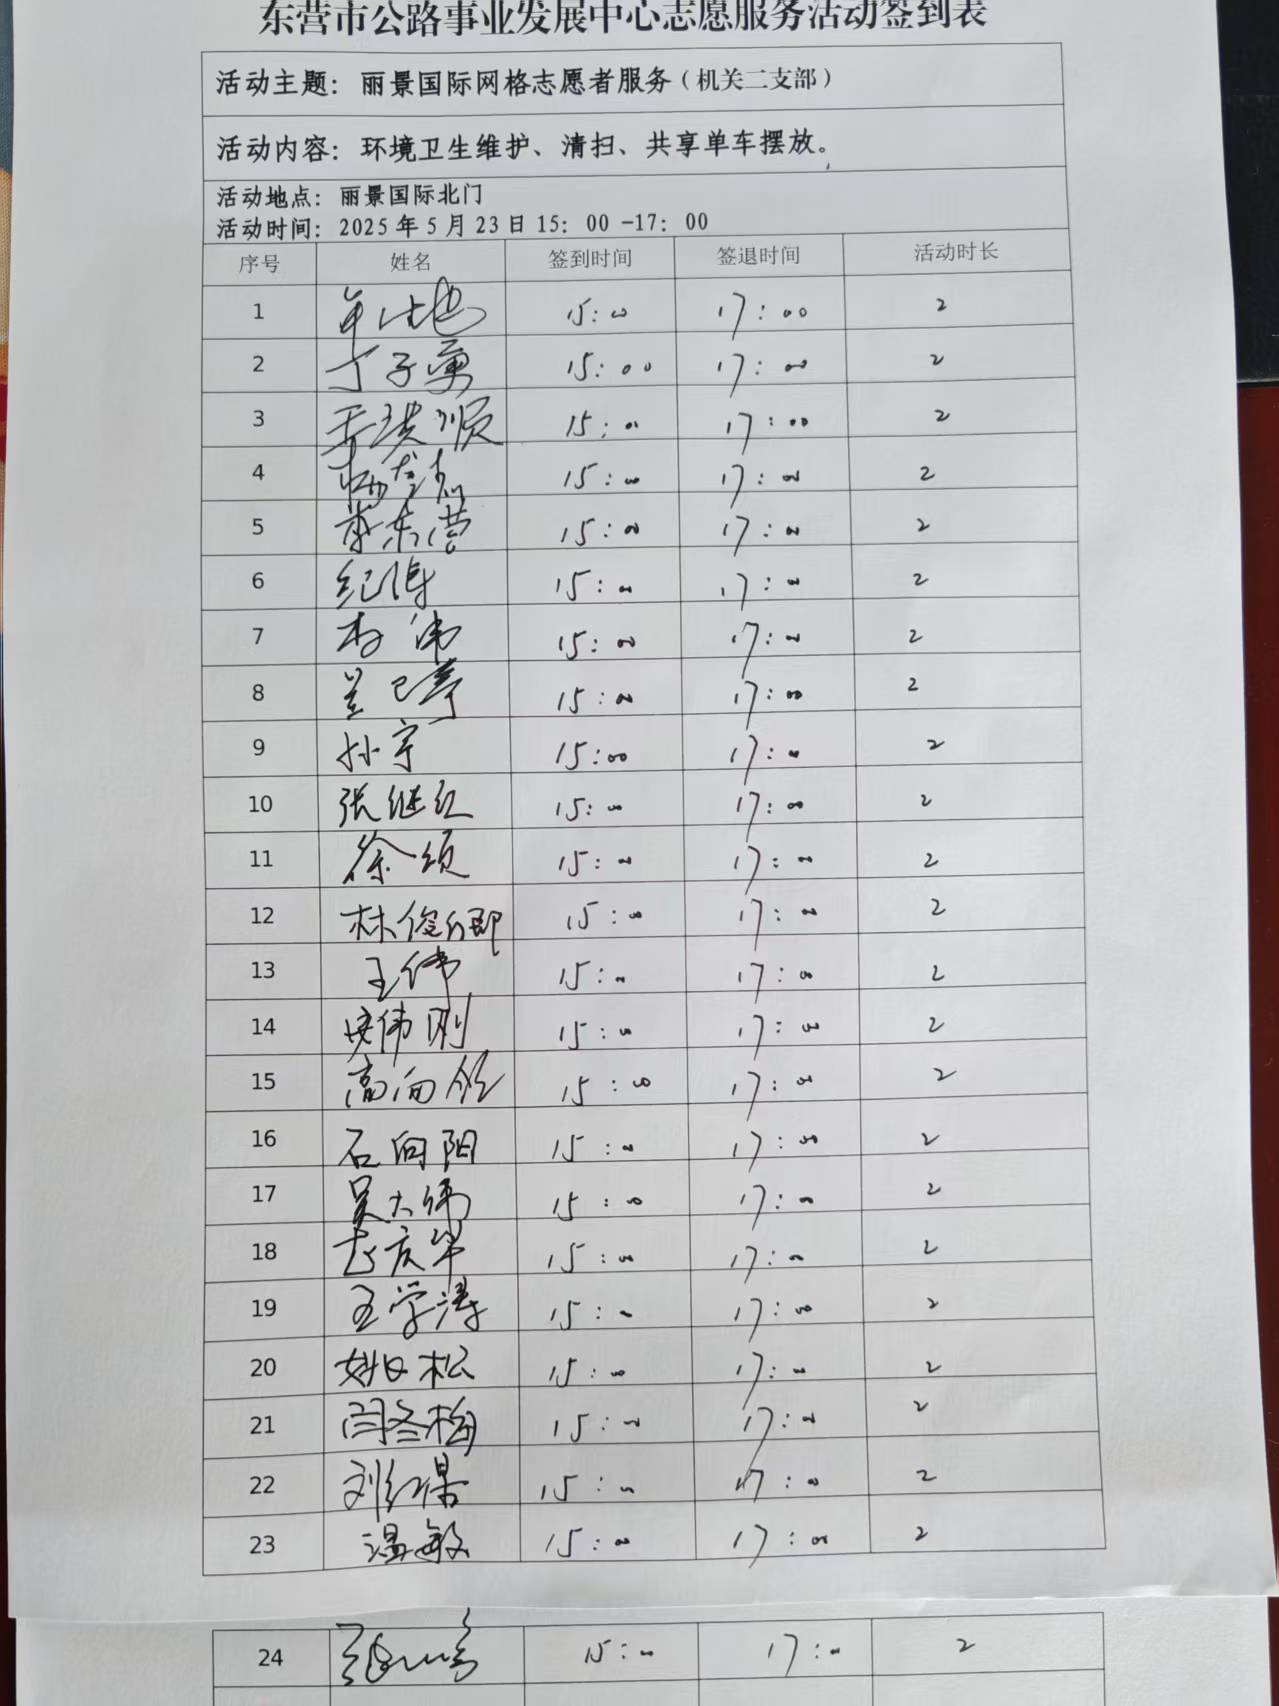 东营市公路事业发展中心志愿服务活动签到表
活动主题：丽景国际网格志愿者服务（机关二支部）
活动内容：环境卫生维护、清扫、共享单车摆放。
活动地点：丽景国际北门
活动时间：2025年5月23日15：00-17：00
序号 姓名 签到时间 签退时间 活动时长
1 15:00 17:00 2
2 丁子勇 15:00 17:00 2
3 15:00 17:00 2
4 15:00 17:00 2
5 李东营 15:00 17:00 2
6 纪伟 15:00 17:00 2
7 15:00 17:00 2
8 15:00 17:00 2
9 孙宇 15:00 17:00 2
10 张继红 15:00 17:00 2
11 徐颂 15:00 17:00 2
12 林俊卿 15:00 17:00 2
13 王伟 15:00 17:00 2
14 15:00 17:00 2
15 15:00 17:00 2
16 石向阳 15:00 17:00 2
17 吴大伟 15:00 17:00 2
18 赵庆华 15:00 17:00 2
19 王学涛 15:00 17:00 2
20 姚日松 15:00 17:00 2
21 闫冬梅 15:00 17:00 2
22 15:00 17:00 2
23 温敏 15:00 17:00 2
24 15:00 17:00 2